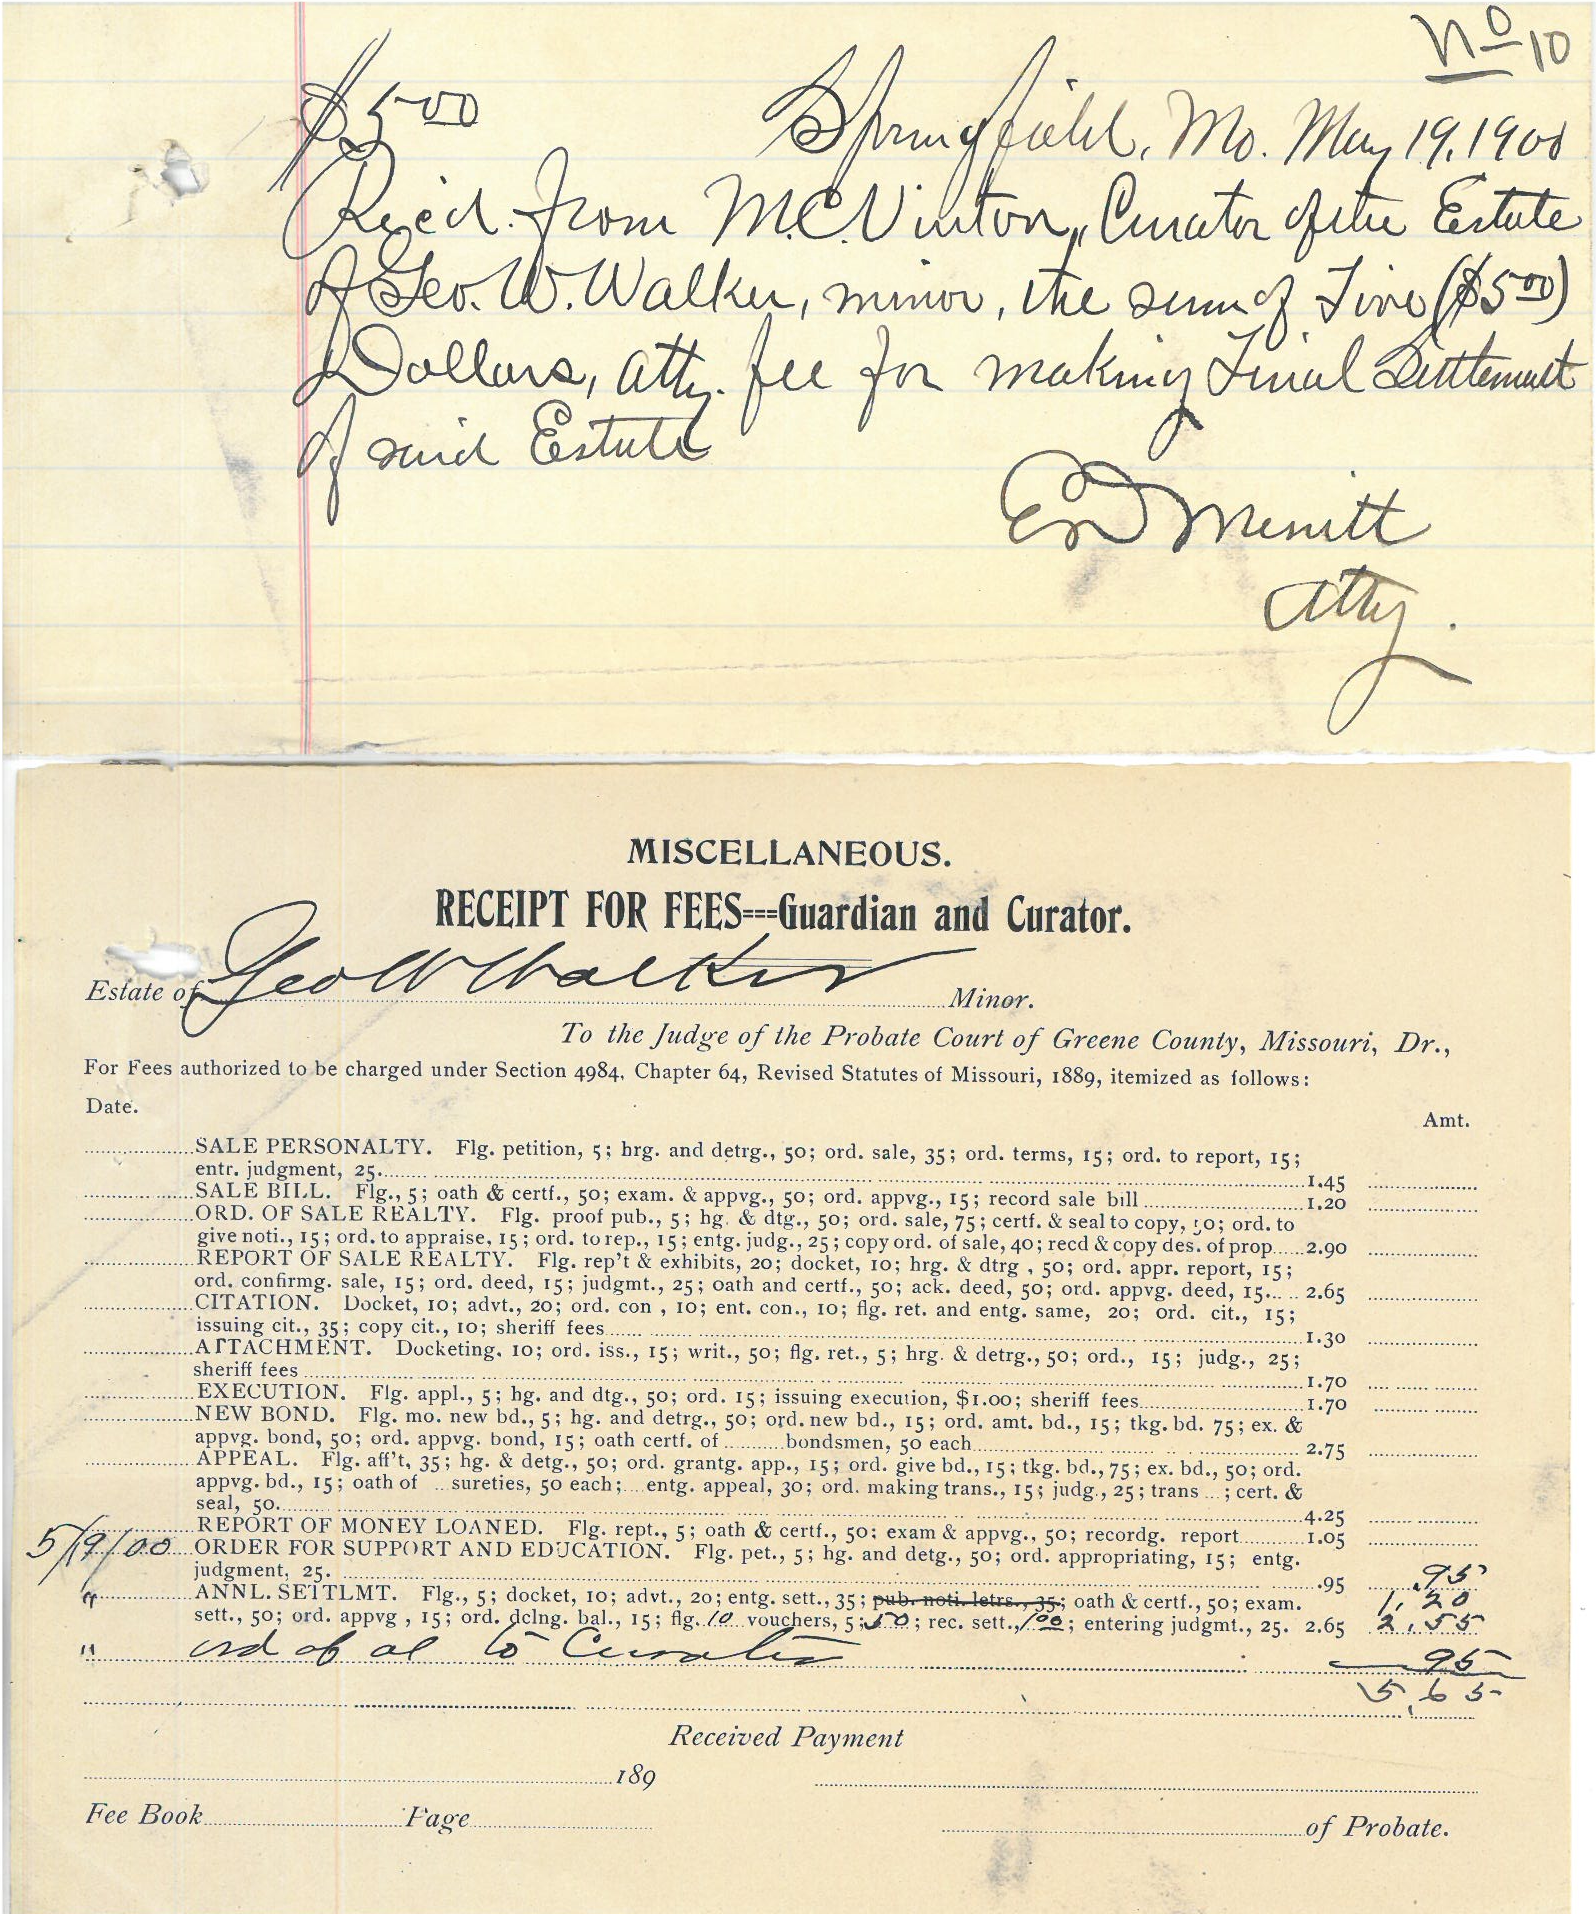 No 10
$5.00
Springfield, Mo. May 19, 1900
Rec'd. from M.C. Vinton, Curator of the Estate
of Geo. W. Walker, minor, the sum of Five ($5.00)
Dollars, atty. fee for making Final Settlement
of said Estate
ED Merritt
Atty.
MISCELLANEOUS.
RECEIPT FOR FEES===Guardian and Curator.
Estate of Geo W Walker Minor.
To the Judge of the Probate Court of Greene County, Missouri, Dr.,
For Fees authorized to be charged under Section 4984, Chapter 64, Revised Statutes of Missouri, 1889, itemized as follows:
Date. Amt.
SALE PERSONALTY. Flg. petition, 5; hrg. and detrg., 50; ord. sale, 35; ord. terms, 15; ord. to report, 15;
entr. judgment, 25. 1.45
SALE BILL. Flg., 5; oath & certf., 50; exam. & appvg., 50; ord. appvg., 15; record sale bill 1.20
ORD. OF SALE REALTY. Flg. proof pub., 5; hg. & dtg., 50; ord. sale, 75; certf. & seal to copy, 50; ord. to
give noti., 15; ord. to appraise, 15; ord. to rep., 15; entg. judg., 25; copy ord. of sale, 40; recd & copy des. of prop 2.90
REPORT OF SALE REALTY. Flg. rep't & exhibits, 20; docket, 10; hrg. & dtrg , 50; ord. appr. report, 15;
ord. confirmg. sale, 15; ord. deed, 15; judgmt., 25; oath and certf., 50; ack. deed, 50; ord. appvg. deed, 15 2.65
CITATION. Docket, 10; advt., 20; ord. con , 10; ent. con., 10; flg. ret. and entg. same, 20; ord. cit., 15;
issuing cit., 35; copy cit., 10; sheriff fees 1.30
ATTACHMENT. Docketing, 10; ord. iss., 15; writ., 50; flg. ret., 5; hrg. & detrg., 50; ord., 15; judg., 25;
sheriff fees 1.70
EXECUTION. Flg. appl., 5; hg. and dtg., 50; ord. 15; issuing execution, $1.00; sheriff fees 1.70
NEW BOND. Flg. mo. new bd., 5; hg. and detrg., 50; ord. new bd., 15; ord. amt. bd., 15; tkg. bd. 75; ex. &
appvg. bond, 50; ord. appvg. bond, 15; oath certf. of ........ bondsmen, 50 each 2.75
APPEAL. Flg. aff't, 35; hg. & detg., 50; ord. grantg. app., 15; ord. give bd., 15; tkg. bd., 75; ex. bd., 50; ord.
appvg. bd., 15; oath of ... sureties, 50 each; ... entg. appeal, 30; ord. making trans., 15; judg., 25; trans ... ; cert. &
seal, 50. 4.25
REPORT OF MONEY LOANED. Flg. rept., 5; oath & certf., 50; exam & appvg., 50; recordg. report 1.05
5/19/00 ORDER FOR SUPPORT AND EDUCATION. Flg. pet., 5; hg. and detg., 50; ord. appropriating, 15; entg.
judgment, 25. .95 .95
" ANNL. SETTLMT. Flg., 5; docket, 10; advt., 20; entg. sett., 35; pub. noti. letrs., 35; oath & certf., 50; exam. 1.20
sett., 50; ord. appvg , 15; ord. dclng. bal., 15; flg. 10 vouchers, 5; 50; rec. sett., 1.00; entering judgmt., 25. 2.65 2.55
" ord of al to Curator 95
5.65
Received Payment
189
Fee Book Page of Probate.